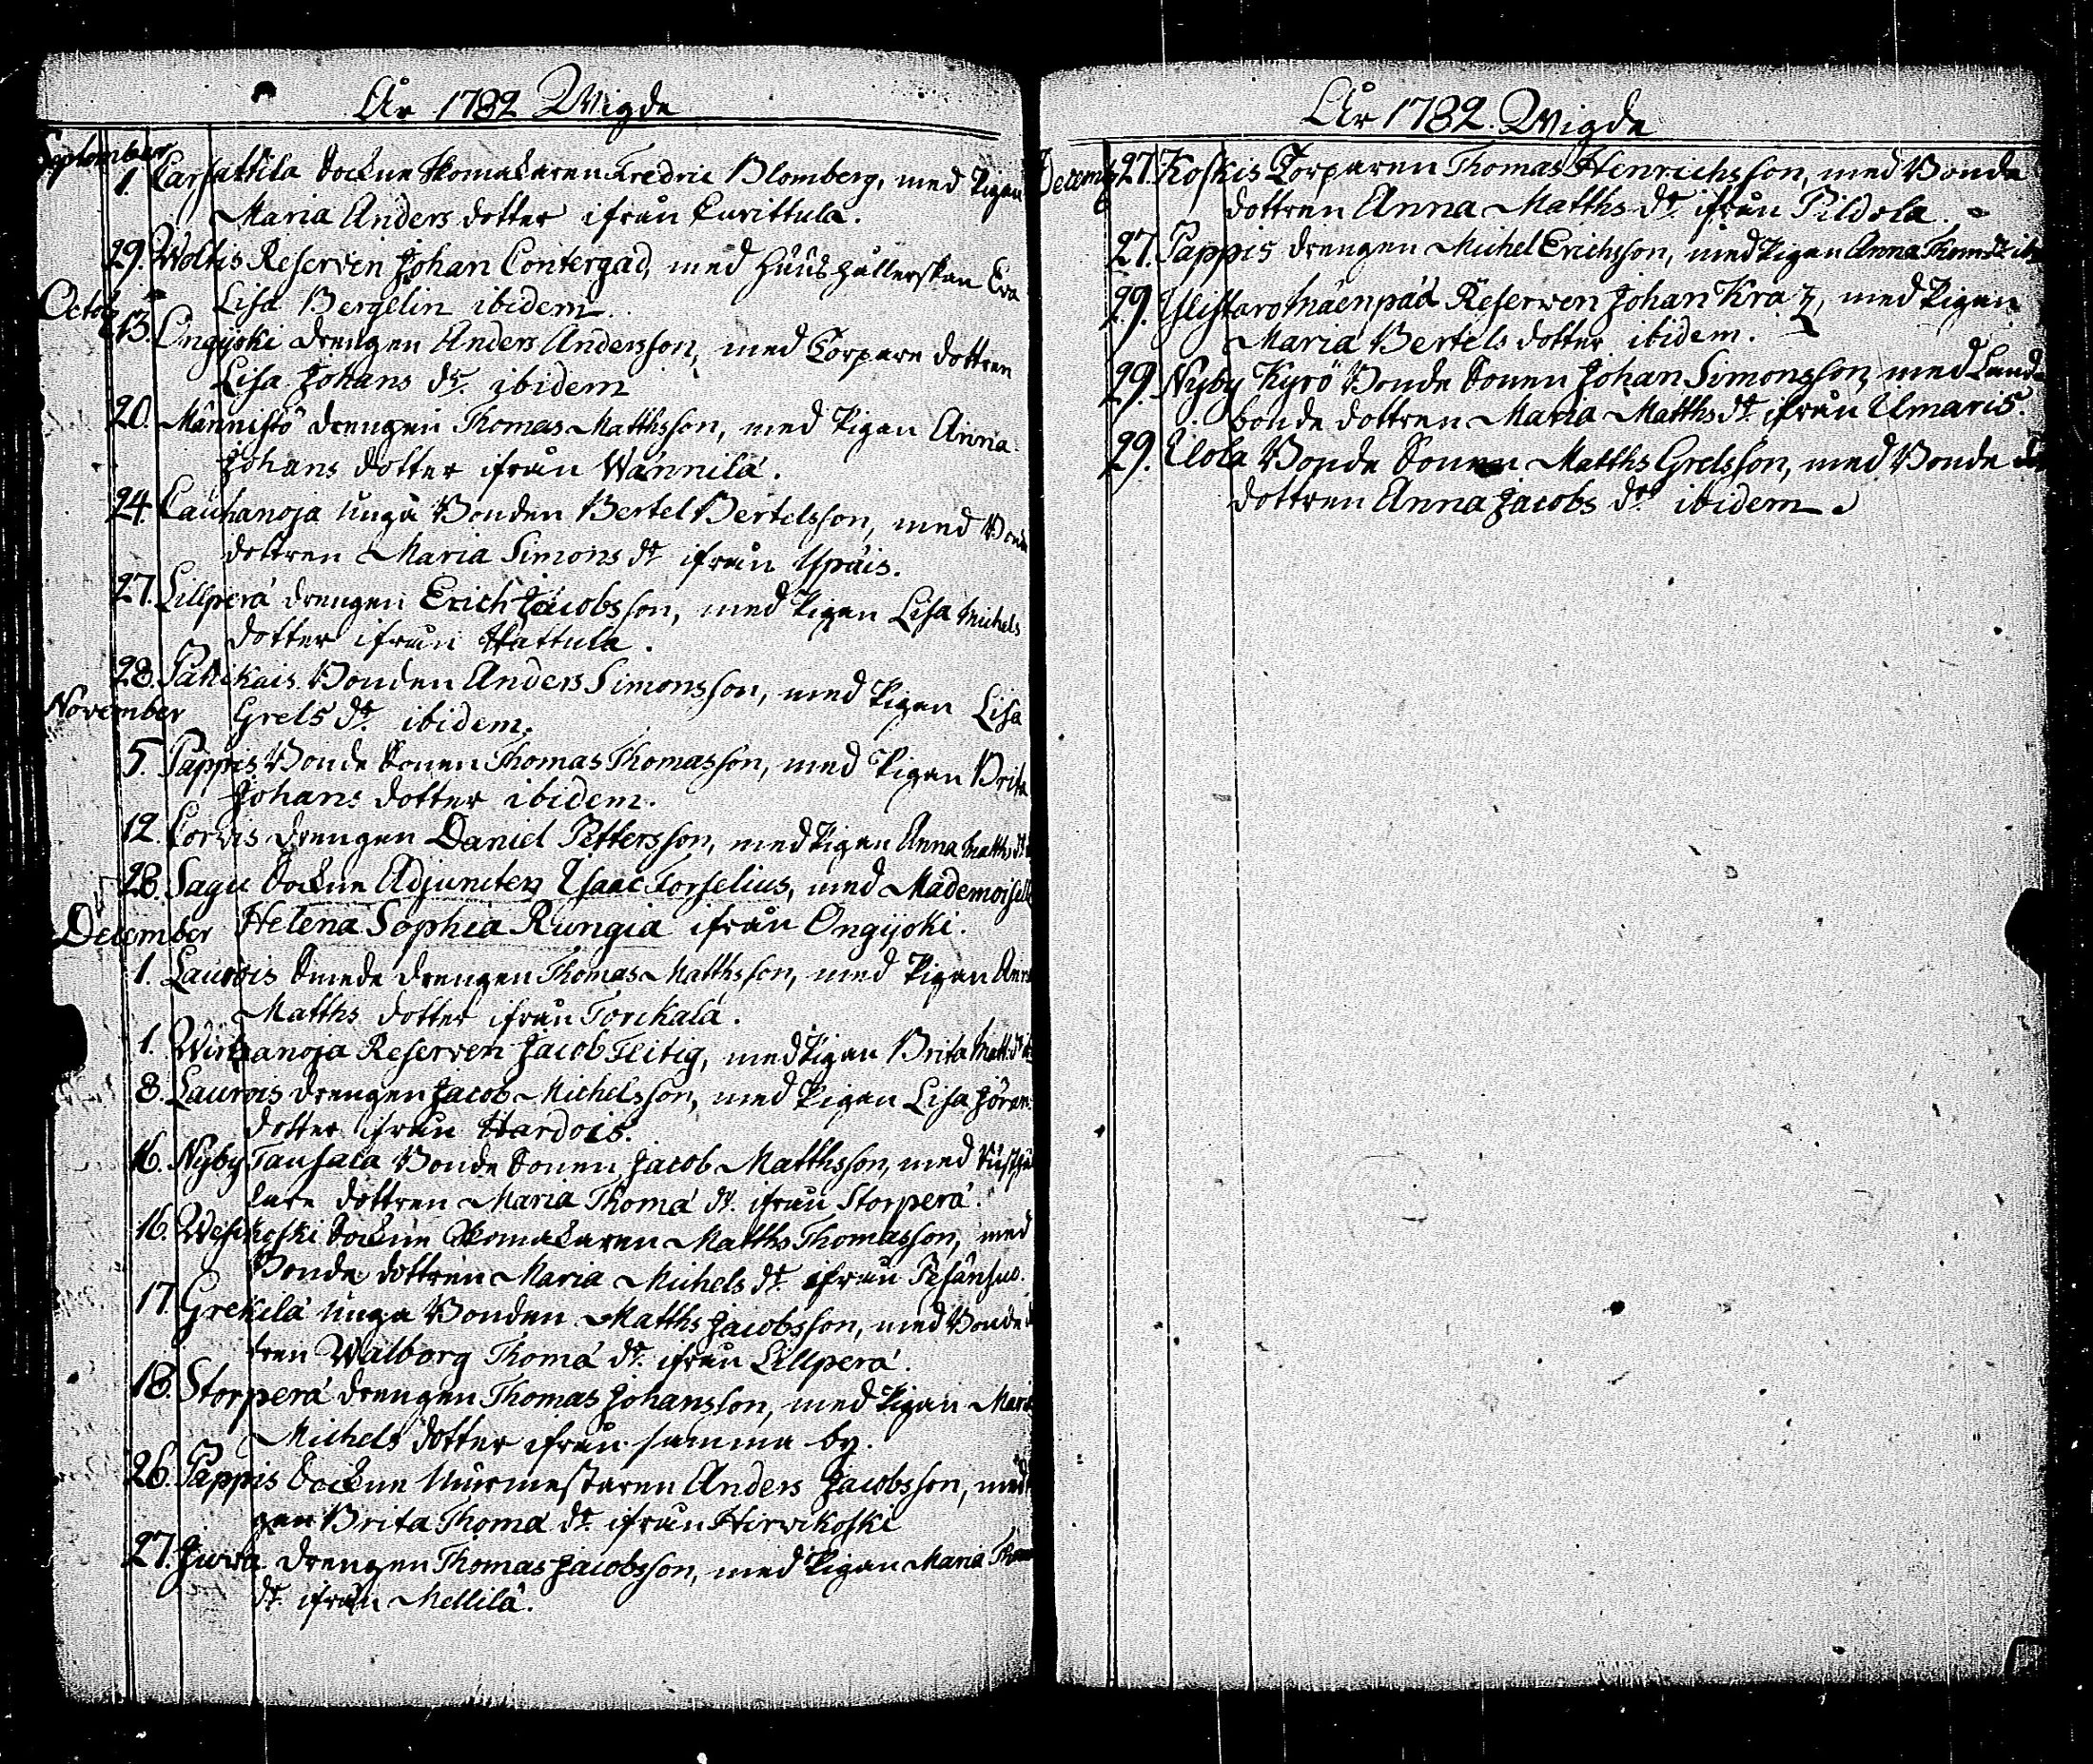 År 1782 Wigde
September
1. Carsattila Sockne Skomakaren Fredric Blomberg, med Pigan
Maria Anders dotter ifrån Curittula.
29. Woltis Reserven Johan Contergad, med Huushållerskan Eva
Lisa Bergelin ibidem.
Octob
13. Ongijoki drengen Anders Andersson, med Torpare dottren
Lisa Johans dr. ibidem
20. Männistö drengen Thomas Matthsson, med Pigan Anna
Johans dotter ifrån Wännilä.
24. Cauhanoja unga Bonden Bertel Bertelsson, med Bonde
dottren Maria Simons dr ifrån Ypäis.
27. Lillperä drengen Erich Jacobsson, med Pigan Lisa Michels
dotter ifrån Hattula.
28. Pahikais Bonden Anders Simonsson, med Pigan Lisa
Grels dr. ibidem.
November
5. Pappis Bonde Sonen Thomas Thomasson, med Pigan Brita
Johans dotter ibidem.
12. Corvis drengen Daniel Pettersson, med Pigan Anna Matths dr
28. Sagu Sockne Adjuncten Isaac Forselius, med Mademoiselle
Helena Sophia Rungia ifrån Ongijoki.
December
1. Laurois Smede drengen Thomas Matthsson, med Pigan Anna
Matths dotter ifrån Torckala.
1. Wirtzanoja Reserven Jacob Flitig, med Pigan Brita Matts dr
8. Laurois drengen Jacob Michelsson, med Pigan Lisa Jörans
dotter ifrån Hardois.
16. Nyby Tausala Bonde Sonen Jacob Matthsson, med Rusthål
lare dottren Maria Thomæ dr. ifrån Storperä.
16. Wesikoski Sockne Skomakaren Matths Thomasson, med
Bonde dottren Maria Michels dr. ifrån Pesänsuo.
17. Grekilä unga Bonden Matths Jacobsson, med Bonde
tren Walborg Thomæ dr. ifrån Lillperä.
18. Storperä drengen Thomas Johansson, med Pigan Maria
Michels dotter ifrån samma by.
26. Pappis Sockne Murmestaren Anders Jacobsson, med
gan Brita Thomæ dr. ifrån Hirvikoski
27. Juvra drengen Thomas Jacobsson, med Pigan Maria Thom
dr. ifrån Mellilä.
År 1782. Wigde
Decemb
27. Koskis Torparen Thomas Henrichsson, med Bonde
dottren Anna Matths dr. ifrån Pildola.
27. Pappis drengen Michel Erichsson, med Pigan Anna Thoms dr ib
29. Yslistaro Mäenpää Reserven Johan Kratz, med Pigan
Maria Bertels dotter ibidem.
29. Nyby Kyrö Bonde Sonen Johan Simonsson, med Land-
bonde dottren Maria Matths dr. ifrån Ilmaris.
29. Elola Bonde Sonen Matths Grelsson, med Bonde
dottren Anna Jacobs dr. ibidem